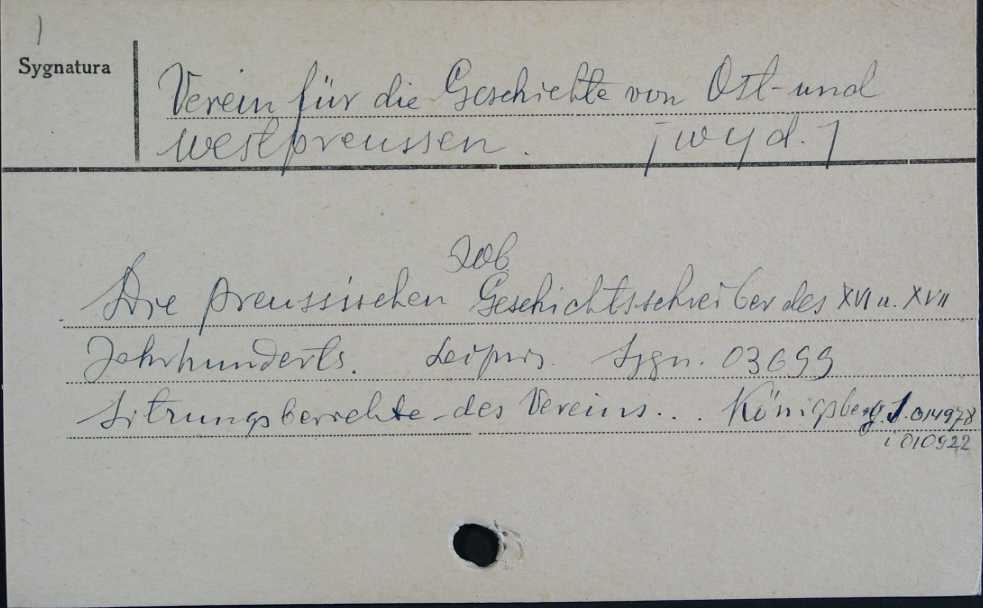 Sygnatura
Verein für die Geschichte von Ost- und
Westpreussen. [wyd.]
zob
Die preussischen Geschichtsschreiber des XVI u. XVII
Jahrhunderts. Leipzig. Sygn. 03699
Sitzungsberichte des Vereins... Königsberg. S. 014978
i 010922